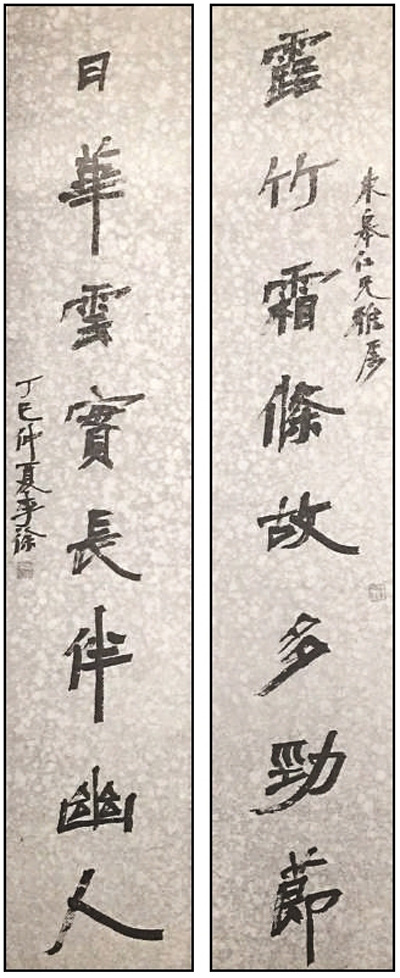 東皋仁兄雅屬
露竹霜條故多勁節
日華雲實長伴幽人
丁巳仲夏李徐